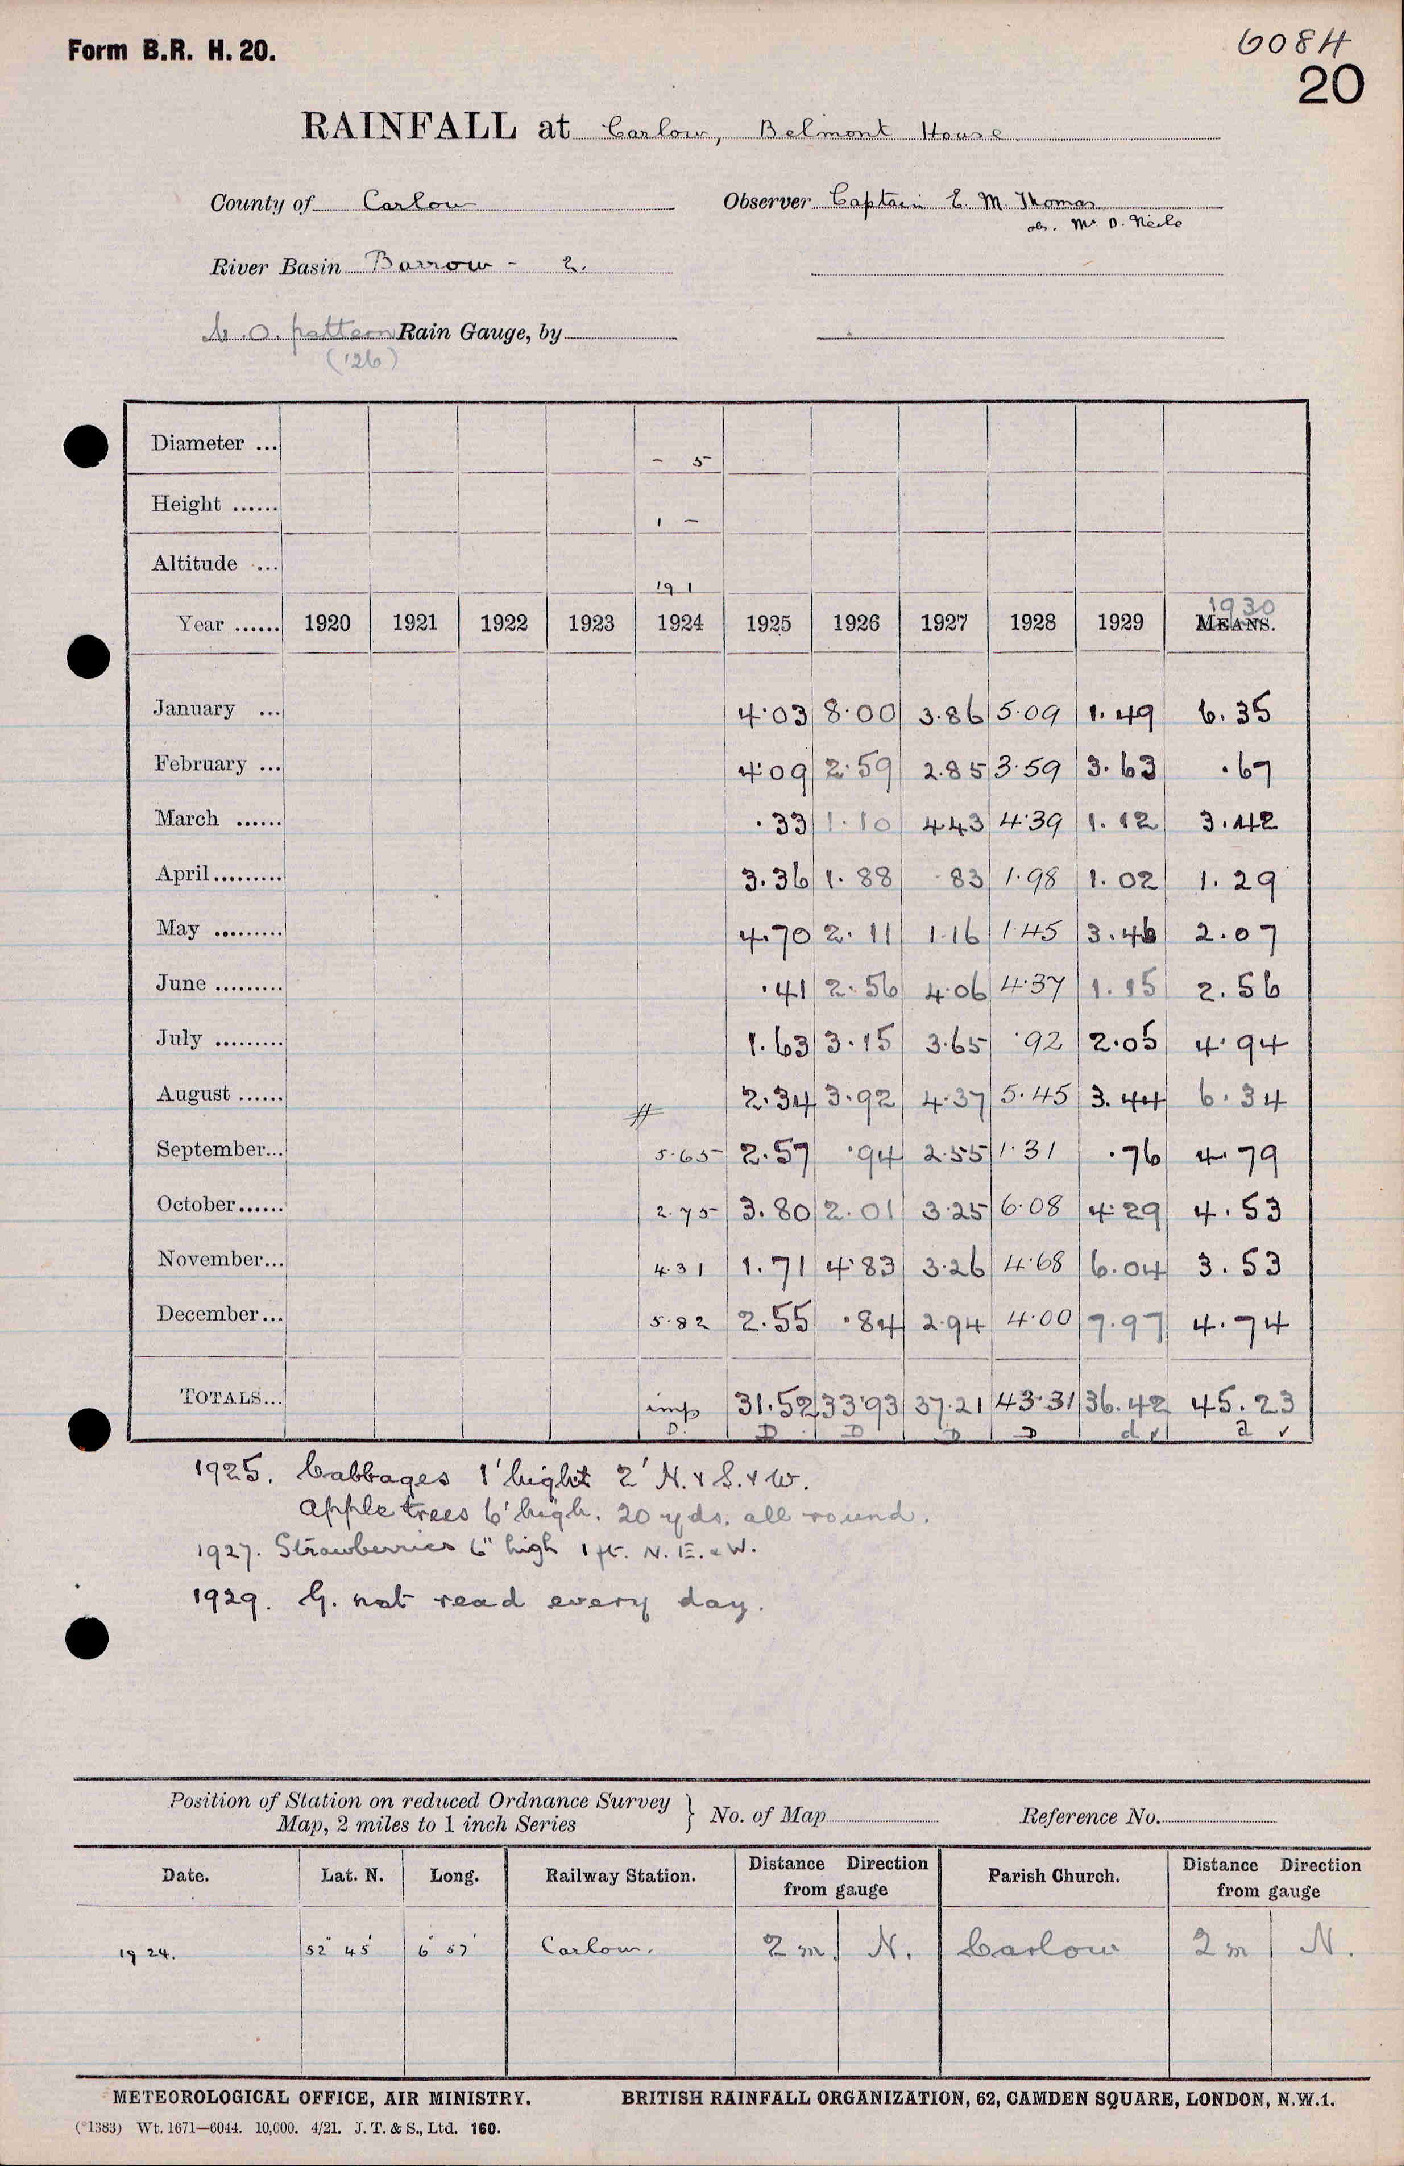 Form B.R. H. 20.
6084
20
RAINFALL at Carlow, Belmont House
County of Carlow Observer Captain E. M. Thomas
obs. Mr D. Neile
River Basin Barrow - 2.
M.O. pattern Rain Gauge, by
('26)
Diameter ... - 5
Height ...... 1 -
Altitude ... 191
Year ...... 1920 1921 1922 1923 1924 1925 1926 1927 1928 1929 MEANS. 1930
January ... 4.03 8.00 3.86 5.09 1.49 6.35
February ... 4.09 2.59 2.85 3.59 3.63 .67
March ...... .33 1.10 4.43 4.39 1.12 3.42
April......... 3.36 1.88 .83 1.98 1.02 1.29
May ......... 4.70 2.11 1.16 1.45 3.46 2.07
June ......... .41 2.56 4.06 4.37 1.15 2.56
July ......... 1.63 3.15 3.65 .92 2.05 4.94
August ...... # 2.34 3.92 4.37 5.45 3.44 6.34
September... 5.65 2.57 .94 2.55 1.31 .76 4.79
October...... 2.75 3.80 2.01 3.25 6.08 4.29 4.53
November... 4.31 1.71 4.83 3.26 4.68 6.04 3.53
December... 5.82 2.55 .84 2.94 4.00 7.97 4.74
TOTALS... imp 31.52 33.93 37.21 43.31 36.42 45.23
D. D D D D d ✓ a ✓
1925. Cabbages 1' hight 2' N. & S. & W.
Apple trees 6' high. 20 yds. all round.
1927. Strawberries 6" high 1 ft. N. E. & W.
1929. G. not read every day.
Position of Station on reduced Ordnance Survey
Map, 2 miles to 1 inch Series } No. of Map Reference No.
Date. Lat. N. Long. Railway Station. Distance Direction from gauge Parish Church. Distance Direction from gauge
1924. 52° 45' 6° 57' Carlow. 2 m. N. Carlow 2 m N.
METEOROLOGICAL OFFICE, AIR MINISTRY. BRITISH RAINFALL ORGANIZATION, 62, CAMDEN SQUARE, LONDON, N.W.1.
(*1383) Wt. 1671—6044. 10,000. 4/21. J. T. & S., Ltd. 160.